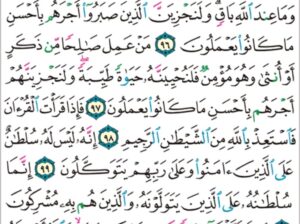 وَمَا عِندَ ٱللَّهِ بَاقٍ وَلَنَجْزِيَنَّ ٱلَّذِينَ صَبَرُوٓا۟ أَجْرَهُم بِأَحْسَنِ
مَا كَانُوا۟ يَعْمَلُونَ ٩٦ مَنْ عَمِلَ صَٰلِحًا مِّن ذَكَرٍ
أَوْ أُنثَىٰ وَهُوَ مُؤْمِنٌ فَلَنُحْيِيَنَّهُۥ حَيَوٰةً طَيِّبَةً وَلَنَجْزِيَنَّهُمْ
أَجْرَهُم بِأَحْسَنِ مَا كَانُوا۟ يَعْمَلُونَ ٩٧ فَإِذَا قَرَأْتَ ٱلْقُرْءَانَ
فَٱسْتَعِذْ بِٱللَّهِ مِنَ ٱلشَّيْطَٰنِ ٱلرَّجِيمِ ٩٨ إِنَّهُۥ لَيْسَ لَهُۥ سُلْطَٰنٌ
عَلَى ٱلَّذِينَ ءَامَنُوا۟ وَعَلَىٰ رَبِّهِمْ يَتَوَكَّلُونَ ٩٩ إِنَّمَا
سُلْطَٰنُهُۥ عَلَى ٱلَّذِينَ يَتَوَلَّوْنَهُۥ وَٱلَّذِينَ هُم بِهِۦ مُشْرِكُونَ